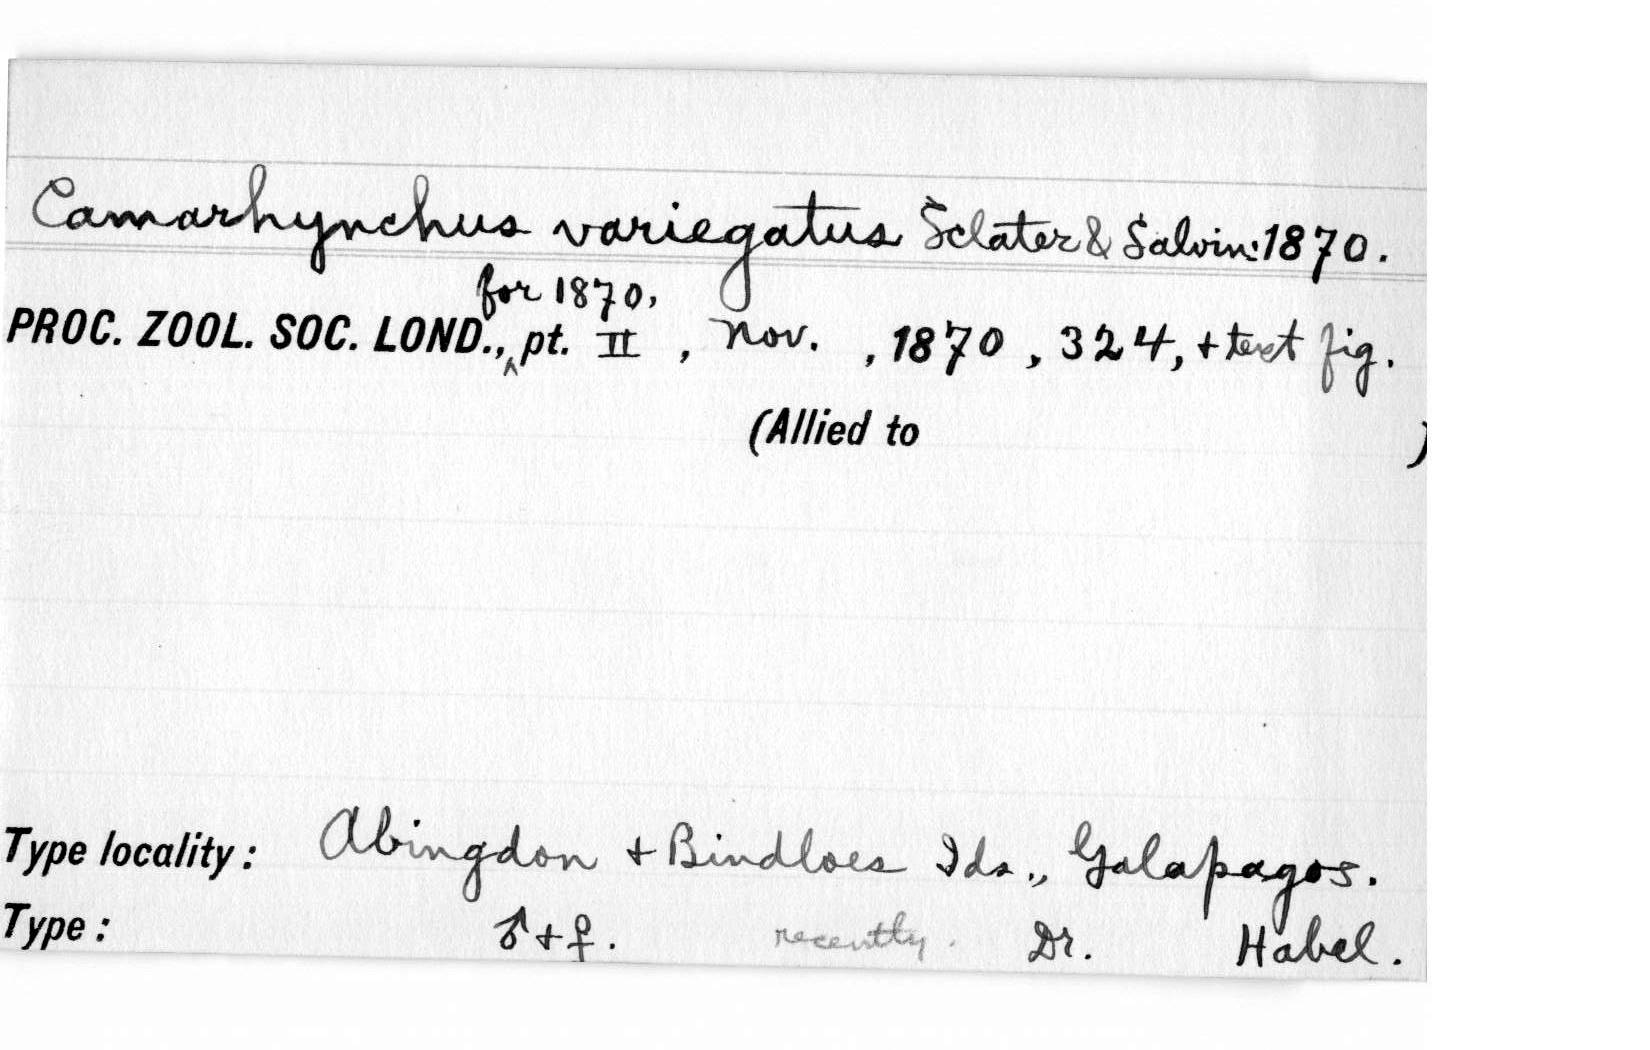 Camarhynchus variegatus Sclater & Salvin: 1870.
for 1870,
PROC. ZOOL. SOC. LOND., ^ pt. II, Nov. , 1870, 324, + text fig.
(Allied to )
Type locality: Abingdon + Bindloes Ids., Galapagos.
Type: ♂ + ♀. recently. Dr. Habel.